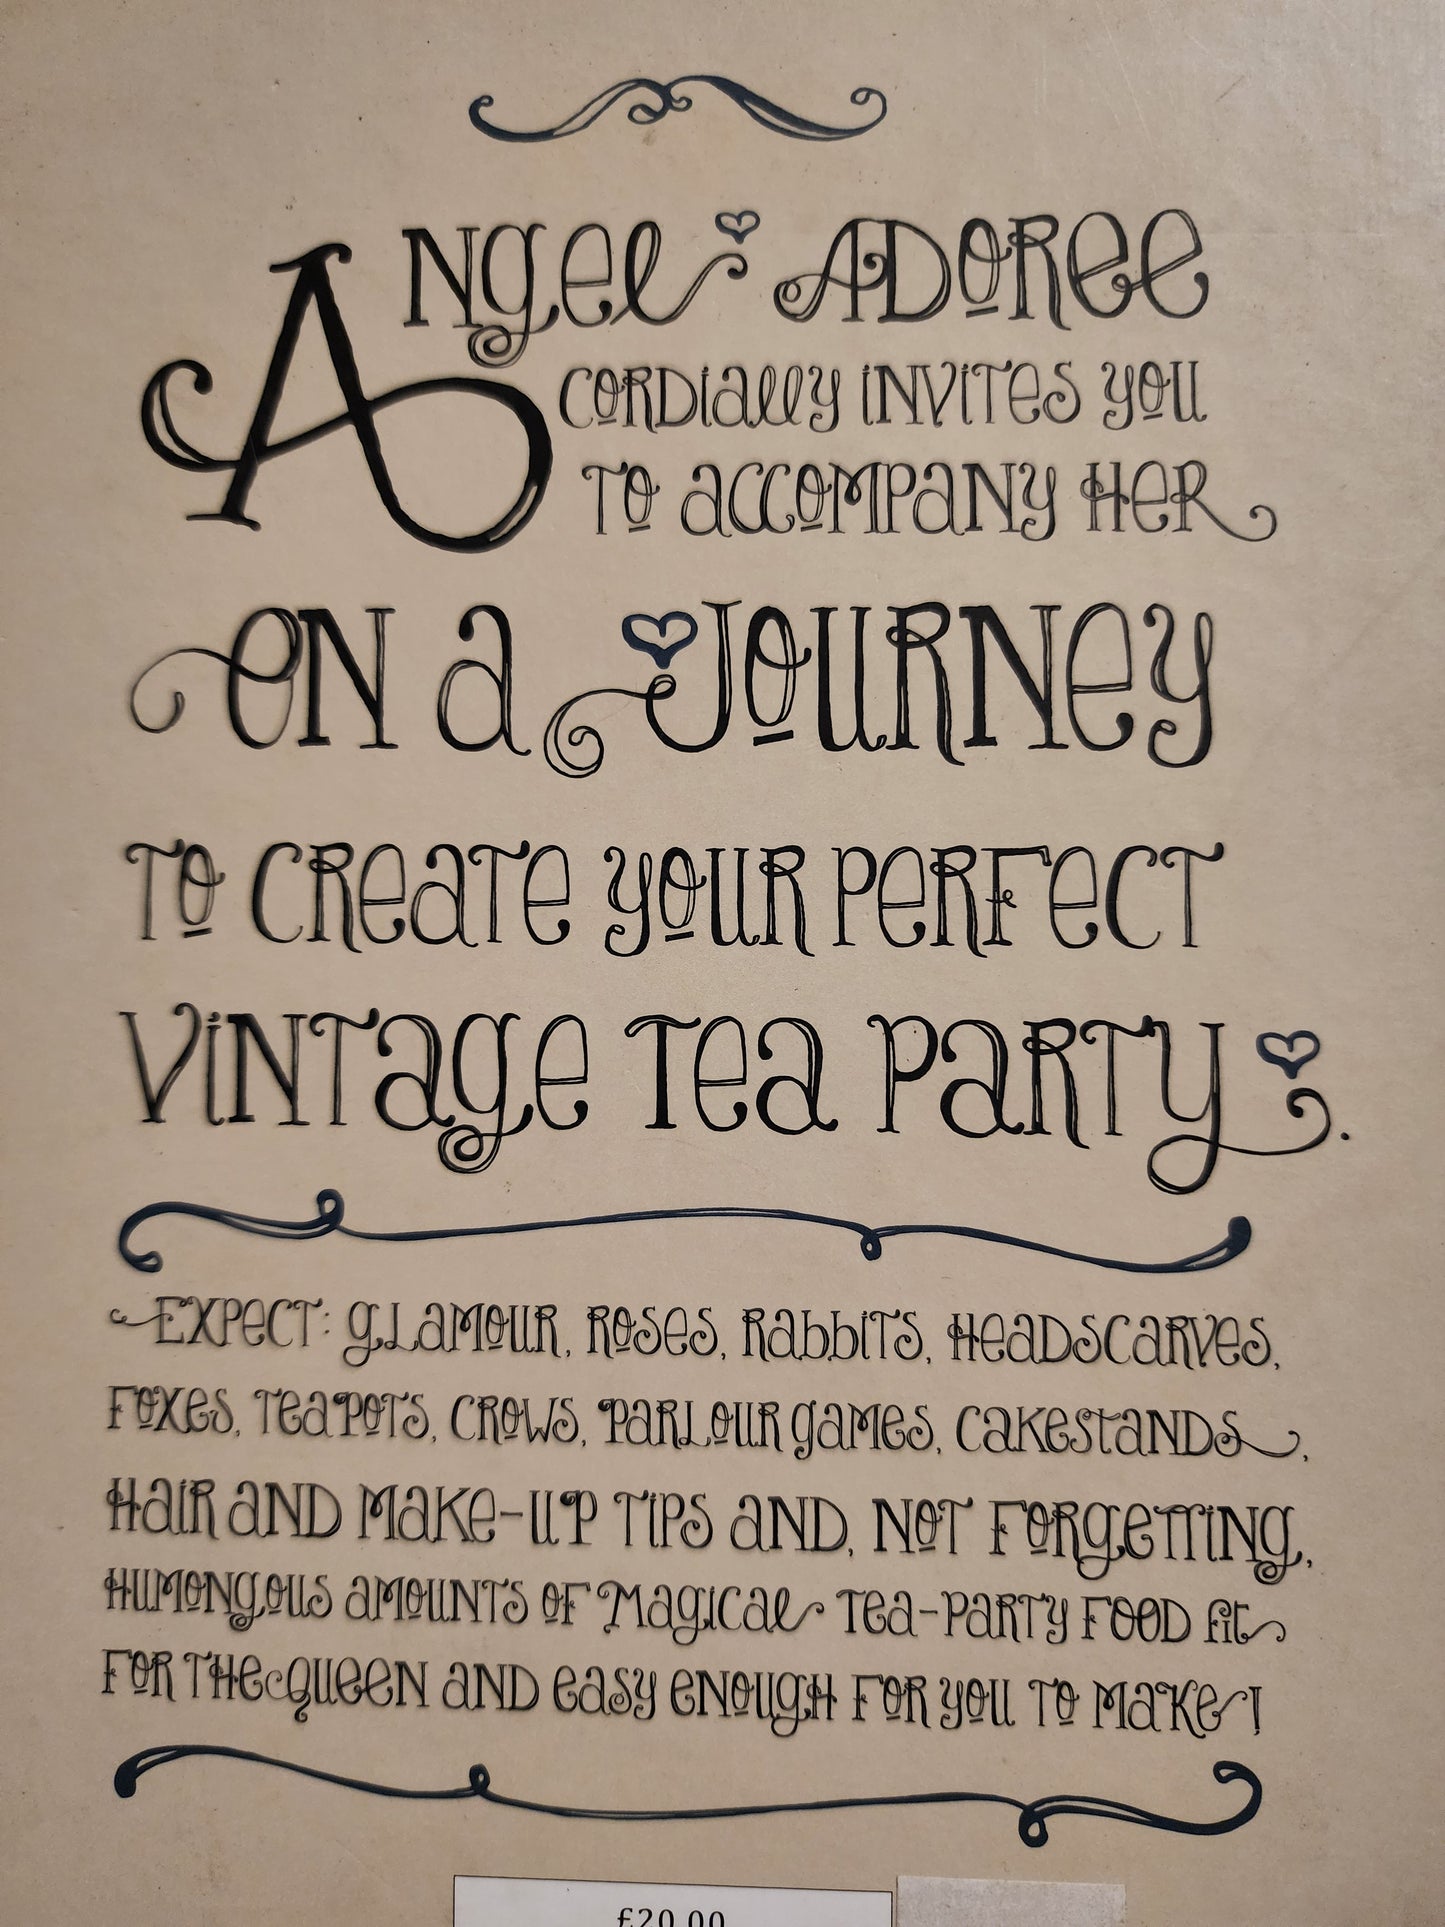 Angel Adoree
cordially invites you
to accompany her
on a Journey
to create your perfect
vintage tea party.
Expect: glamour, roses, rabbits, headscarves,
foxes, teapots, crows, parlour games, cakestands,
hair and make-up tips and, not forgetting,
humongous amounts of magical tea-party food fit
for the Queen and easy enough for you to make!
£20.00